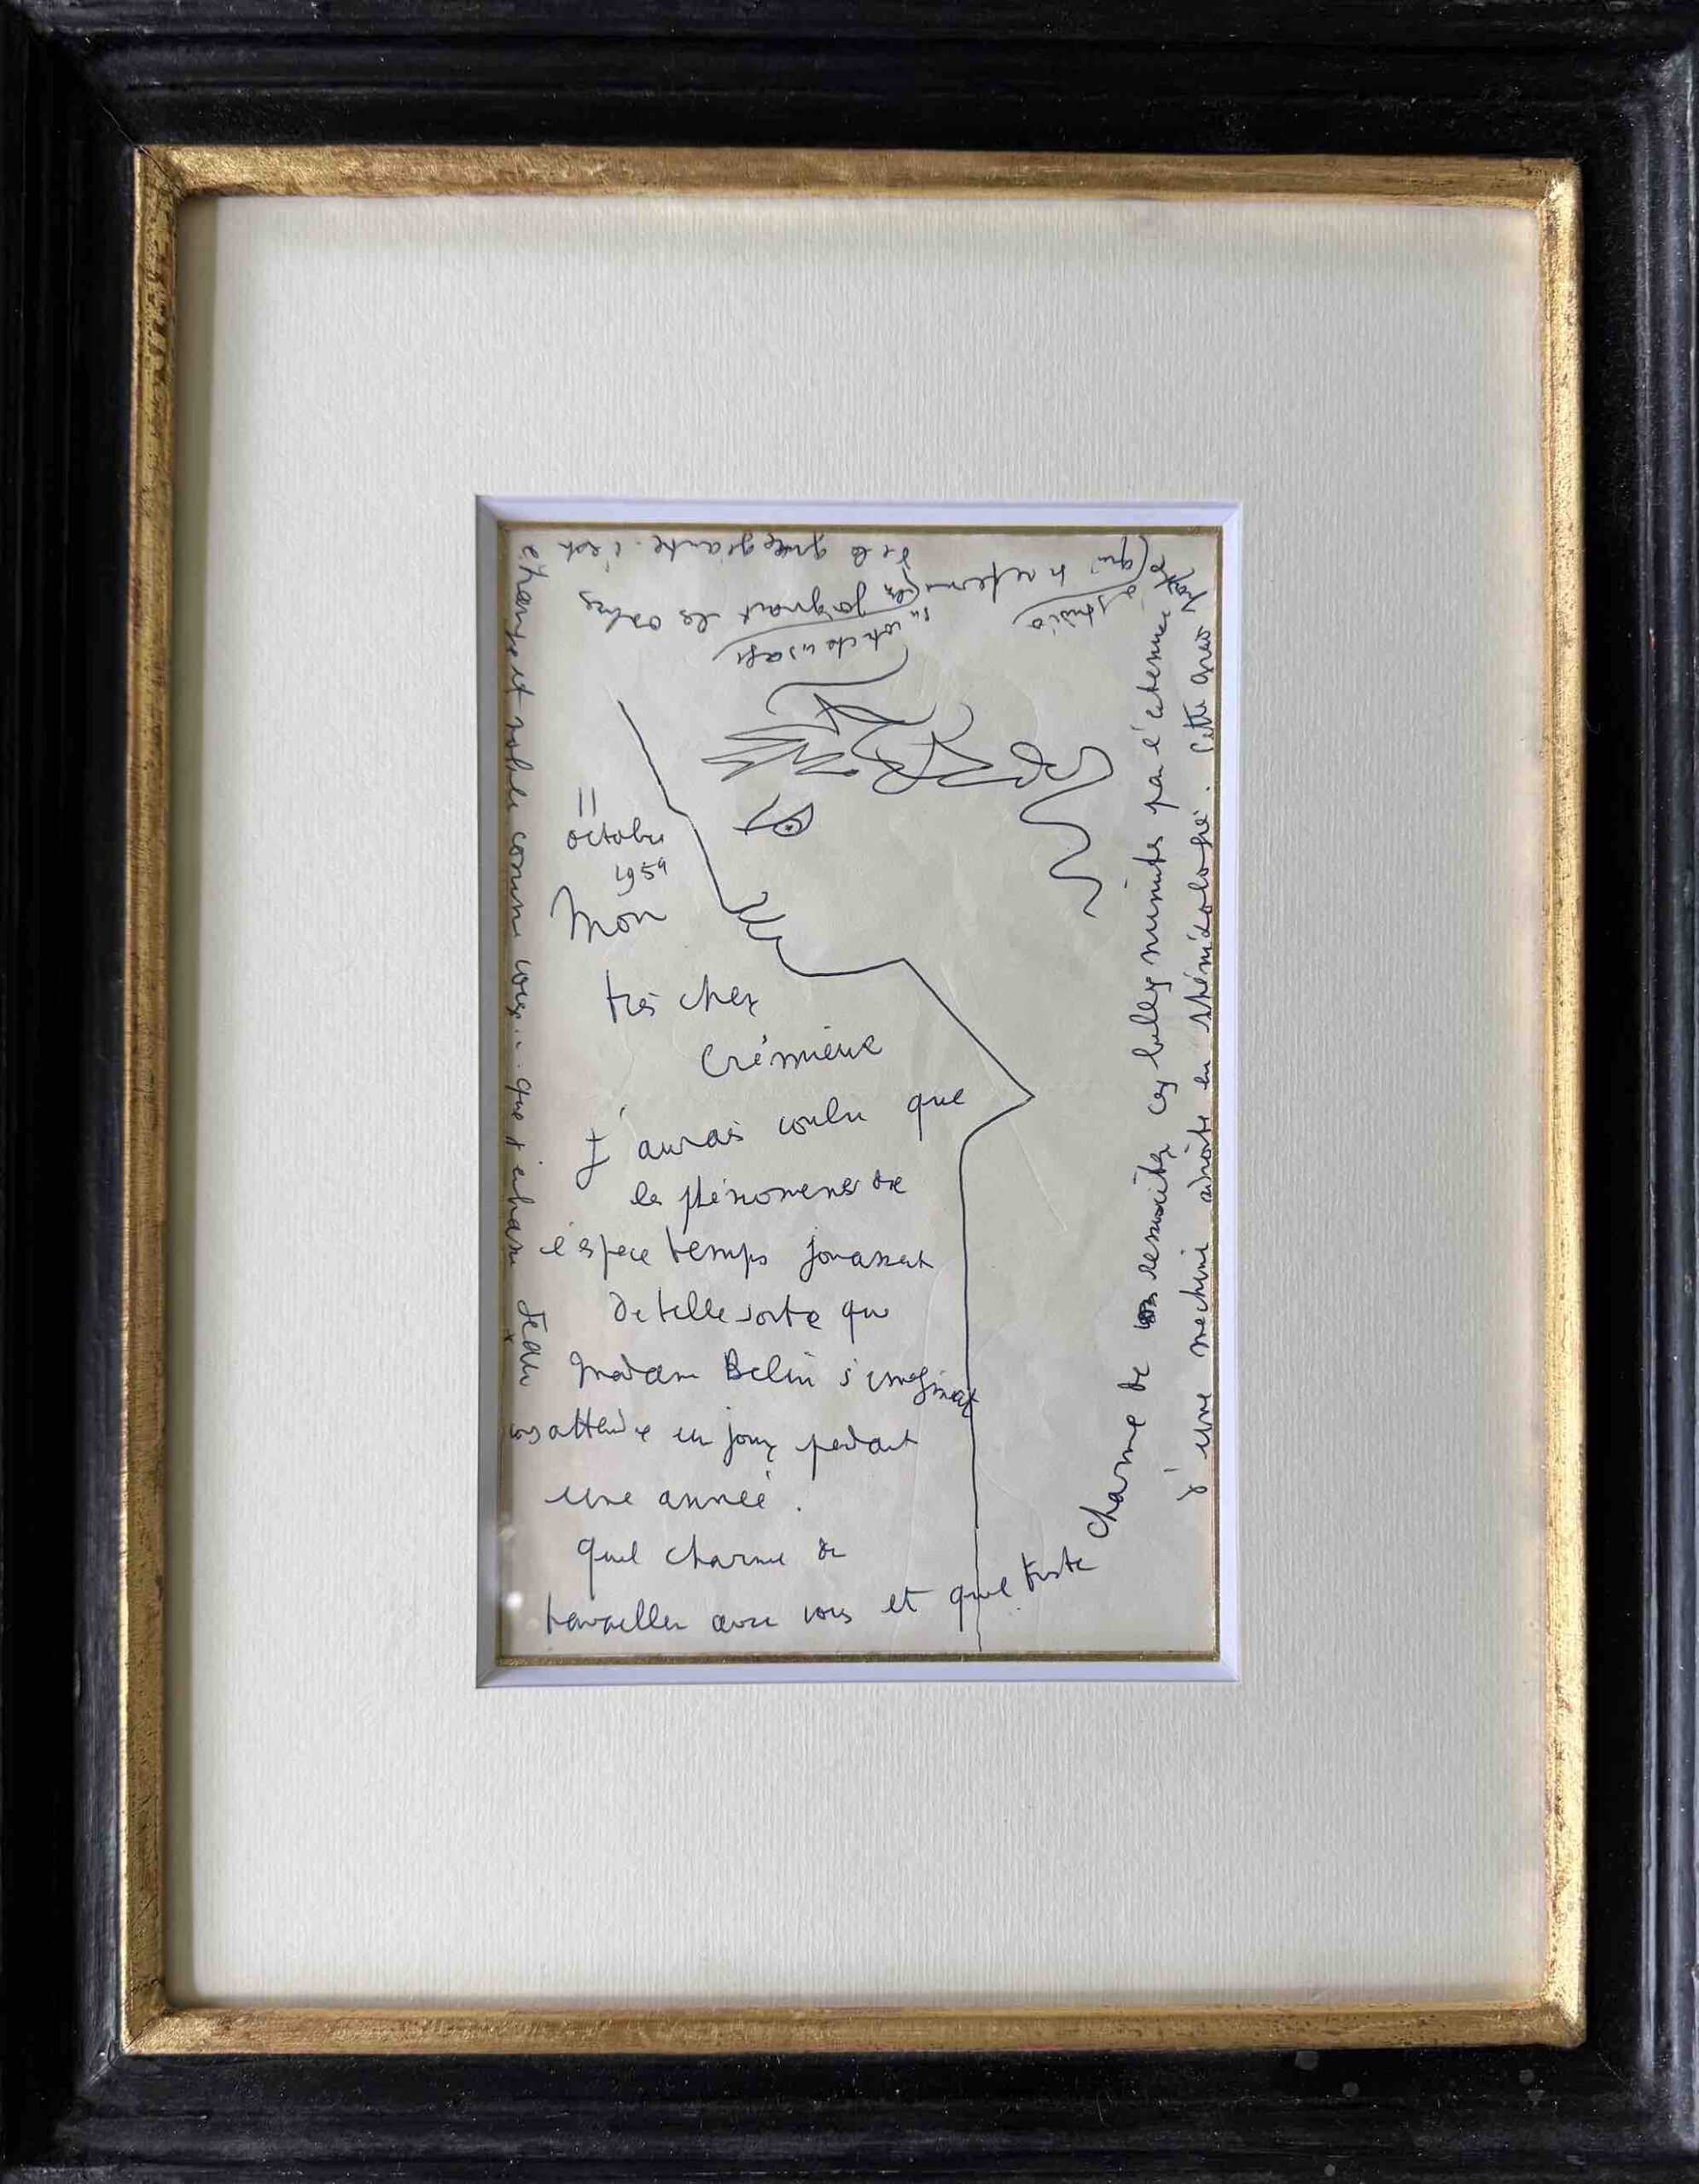 11
octobre
1954
Mon
très cher
Crémieux
J'aurais voulu que
les phénomenes de
l'espace temps jouassent
de telle sorte que
Madame Belin s'imaginat
vous attendre un jour pendant
une année.
Quel charme de
travailler avec vous et quel triste
charme de ressusciter ces belles minutes par l'entremise
d'une machine adroite en
Cette
(qui se referme
à studio
en joignant les
de la géante. c'est
étrange et noble comme vous... que j'embrasse
Jean
*